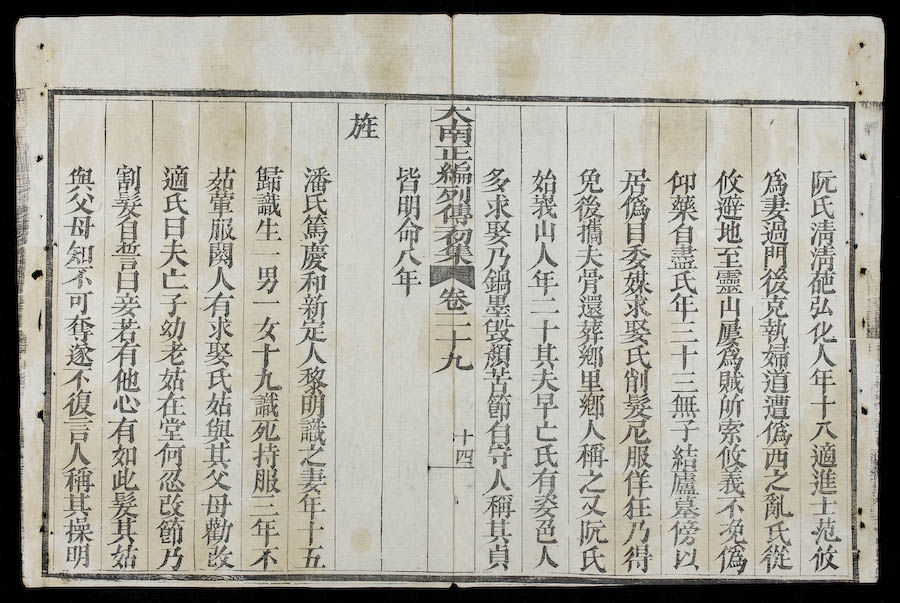 阮氏清清葩弘化人年十八適進士范攸
爲妻過門後克執婦道遭僞西之亂氏從
攸避地至靈山屢爲賊所索攸義不免僞
仰藥自盡氏年三十三無子結廬墓傍以
居僞目委媒求娶氏削髮尼服佯狂乃得
免後攜夫骨還葬鄉里鄉人稱之又阮氏
始峩山人年二十其夫早亡氏有姿色人
多求娶乃鍋墨毀顏苦節自守人稱其貞
大南正編列傳初集 卷二十九 十四
皆明命八年
旌
潘氏篤慶和新定人黎明識之妻年十五
歸識生一男一女十九識死持服三年不
茹葷服闋人有求娶氏姑與其父母勸改
適氏曰夫亡子幼老姑在堂何忍改節乃
割髮自誓曰妾若有他心有如此髮其姑
與父母知不可奪遂不復言人稱其操明